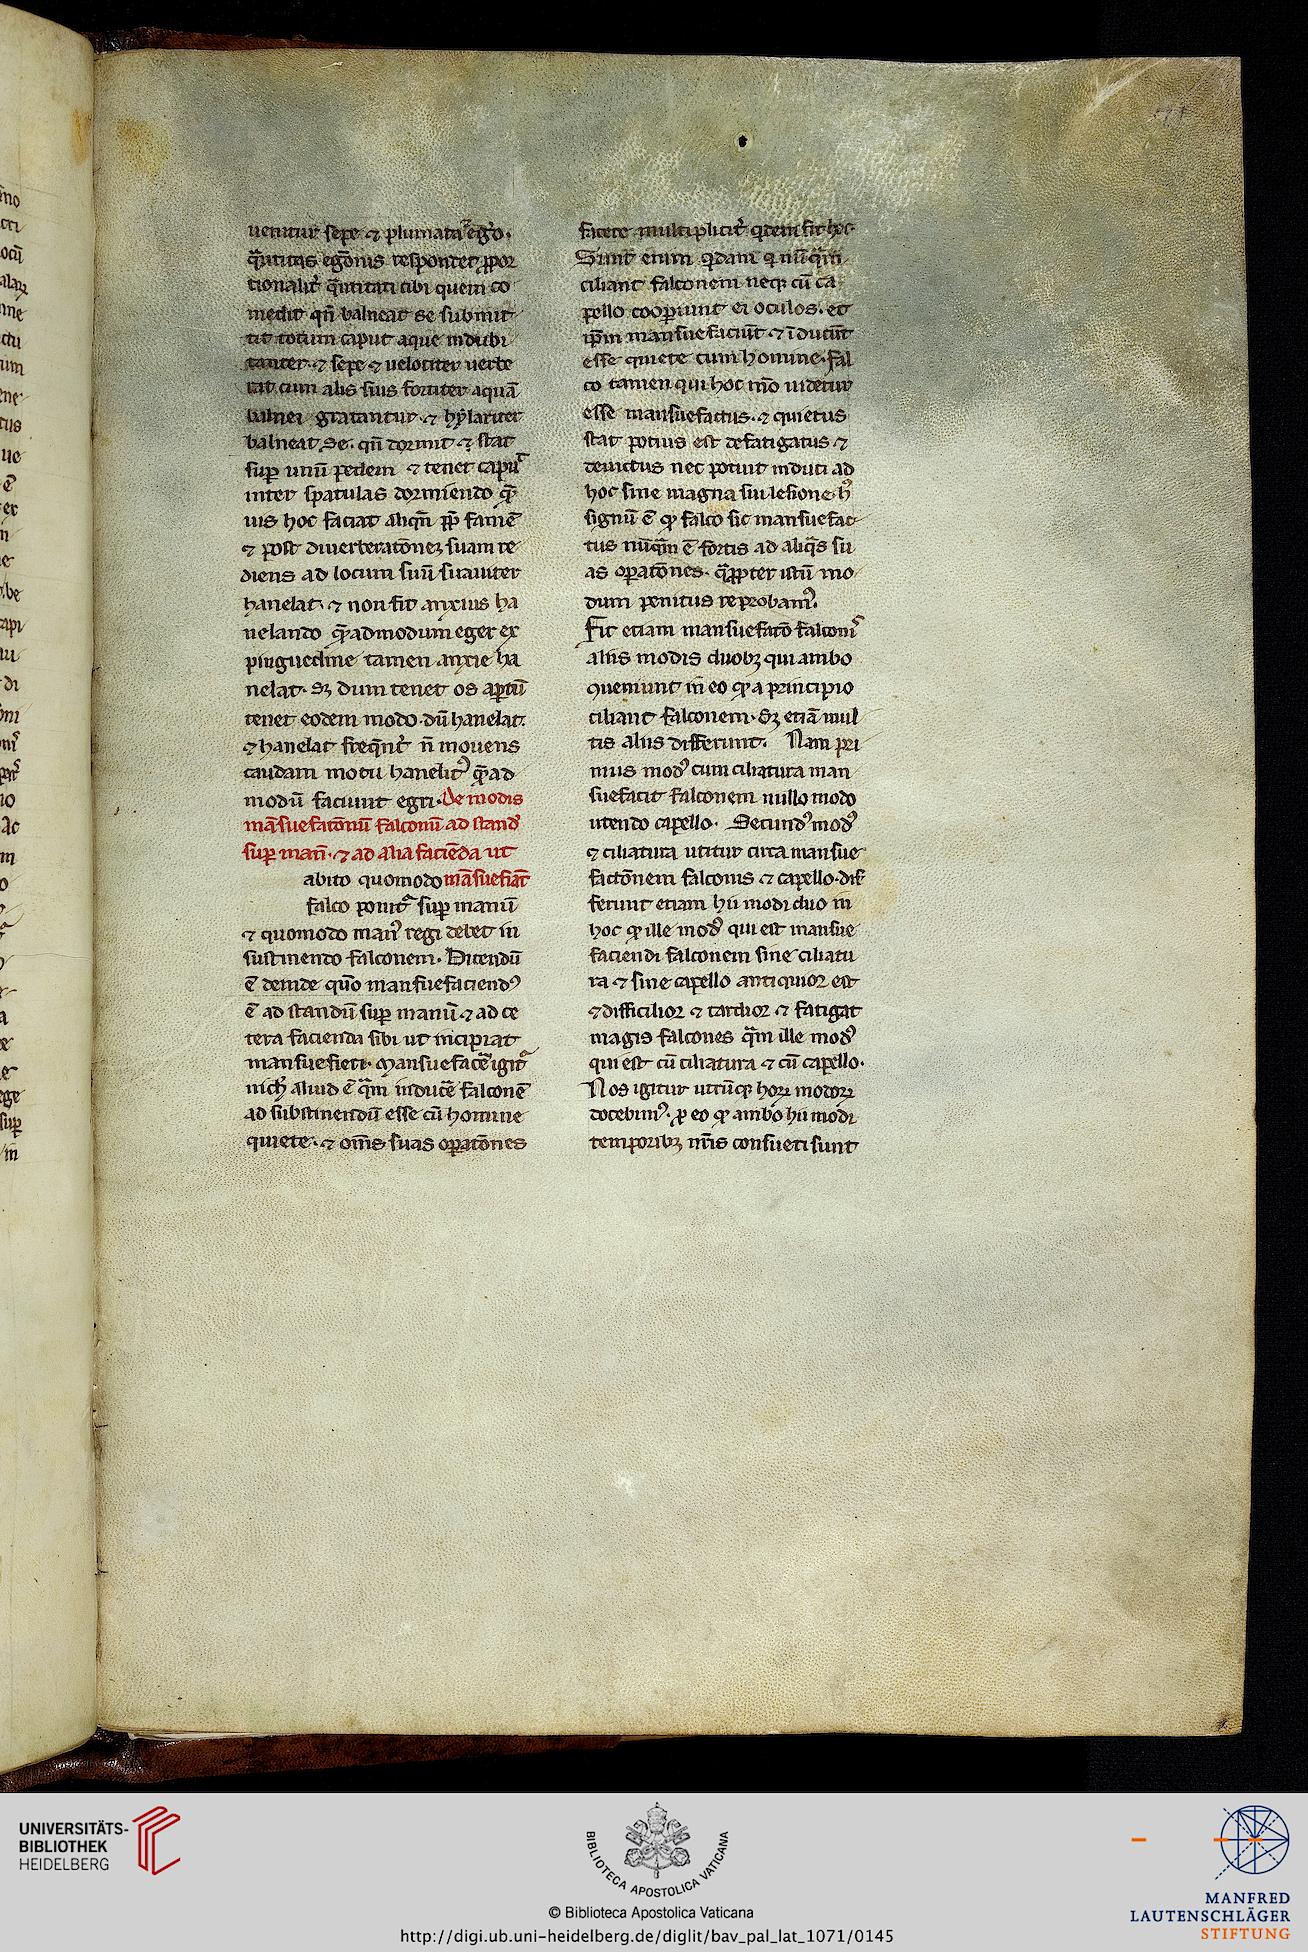 uenitur sepe ⁊ plumata egro.
q̄ntitas egōnis respondet ꝓpor
tionalit̾ q̄ntitati cibi quem co
medit qn̄ balneat se submit
tit totum caput aque indubi
tanter ⁊ sepe ⁊ uelociter uerbe
rat cum alis suis fortiter aquā
balnei gratantur ⁊ hylariter
balneat se. qn̄ dormit ⁊ stat
suꝑ unū pedem ⁊ tenet caput
inter spatulas dormiendo q̄m
uis hoc faciat aliqn̄ ꝓꝑ famē
⁊ post diuerberatōneꝫ suam re
diens ad locum suū suauiter
hanelat ⁊ non sit anxius ha
nelando q̄admodum eger ex
pinguedine tamen anxie ha
nelat. Sꝫ dum tenet os aꝑtū
tenet eodem modo dū hanelat.
⁊ hanelat freq̄nt̾ n̄ mouens
caudam motu hanelitꝰ q̄mad
modū faciunt egri. De modis
māsuefatōnū falconū ad standꝰ
suꝑ man̄. ⁊ ad alia faciēda ut
abito quomodo māsuefiāt
falco ponit᷑ suꝑ manū
⁊ quomodo manꝰ regi debet in
sustinendo falconem. Dicendū
ē deinde quō mansuefaciendꝰ
ē ad standū suꝑ manū ⁊ ad ce
tera facienda sibi ut incipiat
mansuefieri. Mansuefacē᷑ igit᷑
nichꝉ aliud ē q̄m inducē᷑ falconē
ad substinendū esse cū homine
quiete. ⁊ om̄s suas oꝑatōnes
facere multiplicit̾ qdem fit hoc
Sunt enim qdam q nūq̄m
ciliant falconem neqꝫ cū ca
pello cooꝑiunt ei oculos. et
ip̄m mansuefaciūt ⁊ īducūt
esse quiete cum homine. fal
co tamen qui hoc mō uidetur
esse mansuefactus. ⁊ quietus
stat potius est defatigatus ⁊
deuictus nec potuit induci ad
hoc sine magna sui lesione. hꝰ
signū ē ꝙ falco sic mansuefac
tus nūq̄m ē fortis ad aliq̄s su
as oꝑatōnes. q̄ꝓpter istū mo
dum penitus reprobamꝰ.
Fit etiam mansuefatō falconū
aliis modis duobꝫ qui ambo
ꝯueniunt in eo ꝙ a principio
ciliant falconem. Sꝫ etiā mul
tis aliis differunt. Nam pri
mus modꝰ cum ciliatura man
suefacit falconem nullo modo
utendo capello. Secundꝰ modꝰ
⁊ ciliatura utitur circa mansue
factōnem falconis ⁊ capello. dif
ferunt etiam hii modi duo in
hoc ꝙ ille modꝰ qui est mansue
faciendi falconem sine ciliatu
ra ⁊ sine capello antiquior est
⁊ difficilior ⁊ tardior ⁊ fatigat
magis falcones q̄m ille modꝰ
qui est cū ciliatura ⁊ cū capello.
Nos igitur utrūqꝫ horꝝ modorꝝ
docebimꝰ. ꝓ eo ꝙ ambo hii modi
temporibꝫ nr̄is consueti sunt
UNIVERSITÄTS-
BIBLIOTHEK
HEIDELBERG
BIBLIOTECA APOSTOLICA VATICANA
© Biblioteca Apostolica Vaticana
http://digi.ub.uni-heidelberg.de/diglit/bav_pal_lat_1071/0145
MANFRED
LAUTENSCHLÄGER
STIFTUNG